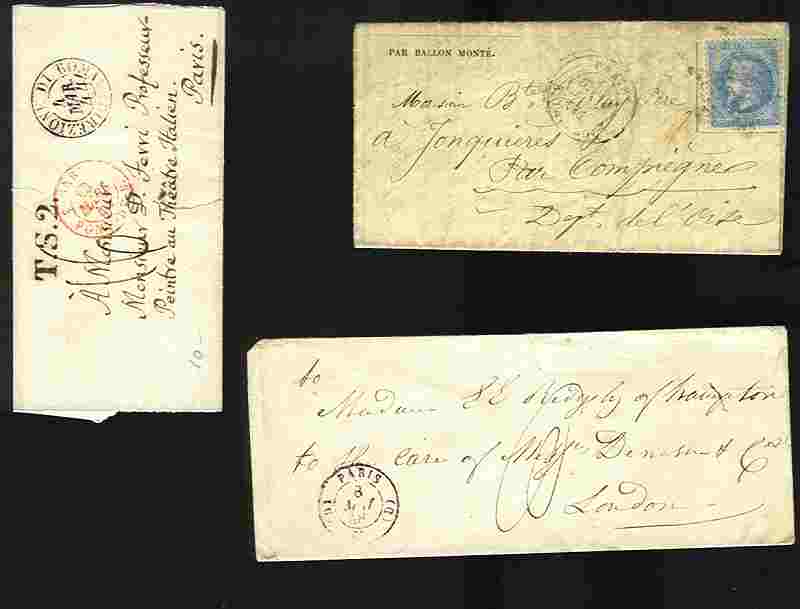 DIREZIONE DI ROMA
MAR
T.S.2
À Monsieur
Monsieur D. Ferri Professeur
Peintre au Théâtre Italien.
Paris.
10-
PAR BALLON MONTÉ.
à Jonquières
Par Compiègne
Dept. de l'Oise
to
Madame Ridgely of Hampton
to the care of Messrs Denison & Co.
London
PARIS
8